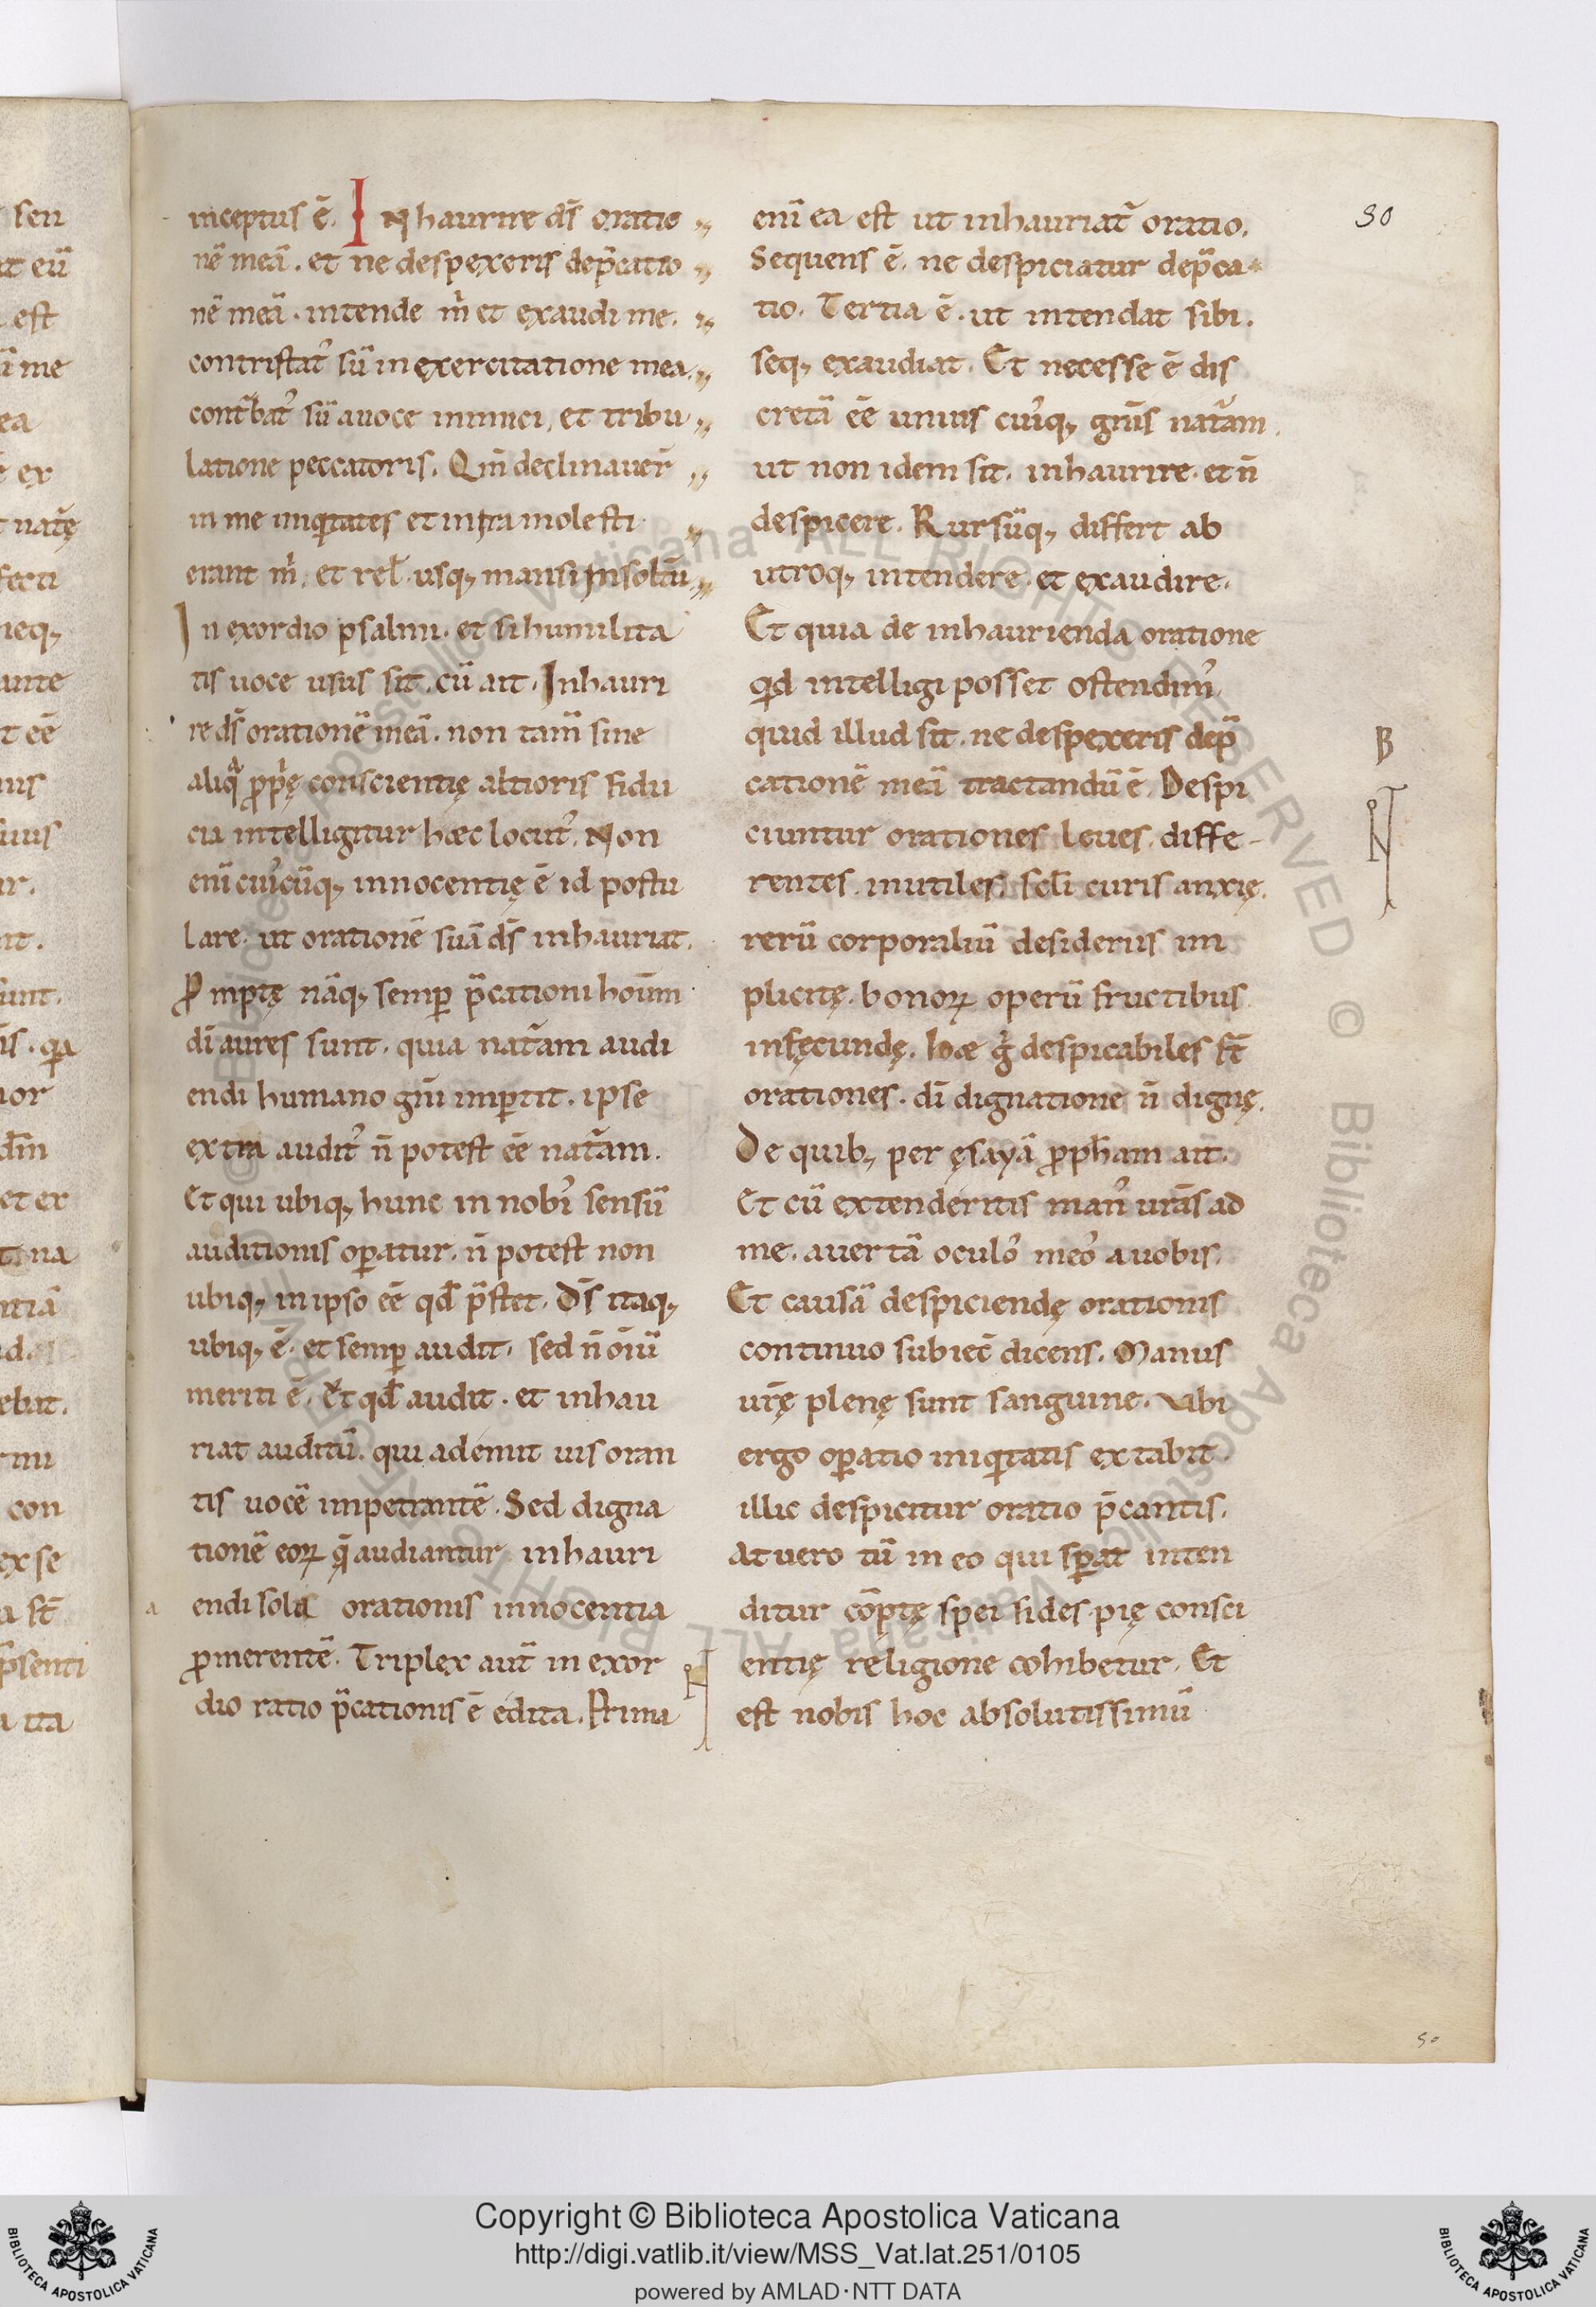 inceptus ē. INhaurire ds̄ oratio
nē meā. et ne despexeris dep̄catio
nē meā. intende m̉ et exaudi me.
contristat᾽ sū in exercitatione mea.
cont᷒bat᾽ sū a uoce inimici, et tribu
latione peccatoris. Qm̄ declinauer̄
in me iniq̉tates et in ira molesti
erant m̉, et rel̄. usq; mansi in solitū.
In exordio psalmi. et si humilita
tis uoce usus sit, cū ait. Inhauri
re ds̄ orationē meā. non tam̄ sine
aliq̉ ꝓp̉ę conscientię altioris fidu
cia intelligitur hæc locut᾽. Non
eni᷒ cui᾽cūq; innocentię ē id postu
lare. ut orationē suā ds̄ inhauriat.
Promptę nāq; semꝑ p̄cationi hoīum
dī aures sunt. quia nat᷒am audi
endi humano gn̄i imꝑtit. ipse
extra audit᾽ n̄ potest eē nat᷒am.
Et qui ubiq; hunc in nobi᾽ sensū
auditionis oꝑatur. n̄ potest non
ubiq; in ipso eē qd̄ p̄stet. Ds̄ itaq;
ubiq; ē. et semꝑ audit. sed n̄ oīū
meriti ē. Et qd̄ audit. et inhau
riat auditū. qui ademit uis oran
tis uocē impetrantē. Sed digna
tionē eoꝝ q̄ audiantur inhauri
endi sola orationis innocentia
ꝓmerentē. Triplex aut̄ in exor
dio ratio p̄cationis ē edita. Prima
eni᷒ ea est ut inhauriat᷒ oratio.
Sequens ē. ne despiciatur dep̄ca
tio. Tertia ē. ut intendat sibi.
seq; exaudiat. Et necesse ē dis
cretā eē unius cui᾽q; gn̄is nat᷒am.
ut non idem sit. inhaurire. et n̄
despicere. Rursūq; differt ab
utroq; intendere. et exaudire.
Et quia de inhaurienda oratione
q̉d intelligi posset ostendim᾽.
quid illud sit. ne despexeris dep̄
cationē meā tractandū ē. Despi
ciuntur orationes leues. diffe-
rentes. inutiles. sc̄li curis anxię.
rerū corporaliū desideriis im
plicitę. bonoꝝ operū fructibus
infęcundę. hæ g̊ despicabiles st̄
orationes. dī dignatione n̄ dignę.
De quib; per ęsayā ꝓph̄am ait.
Et cū extenderitis man᾽ ur̄as ad
me. auertā oculo᾽ meo᾽ a uobis.
Et causā despiciendę orationis
continuo subiec̄ dicens. Manus
ur̄ę plenę sunt sanguine. Ubi
ergo oꝑatio iniq̉tatis extabit.
illic despicitur oratio p̄cantis.
At uero tū in eo qui sꝑat inten
ditur cōptę spei fides pię consci
entię religione cohibetur. Et
est nobis hoc absolutissimū
30
B
N
a
50
Copyright © Biblioteca Apostolica Vaticana
http://digi.vatlib.it/view/MSS_Vat.lat.251/0105
powered by AMLAD·NTT DATA